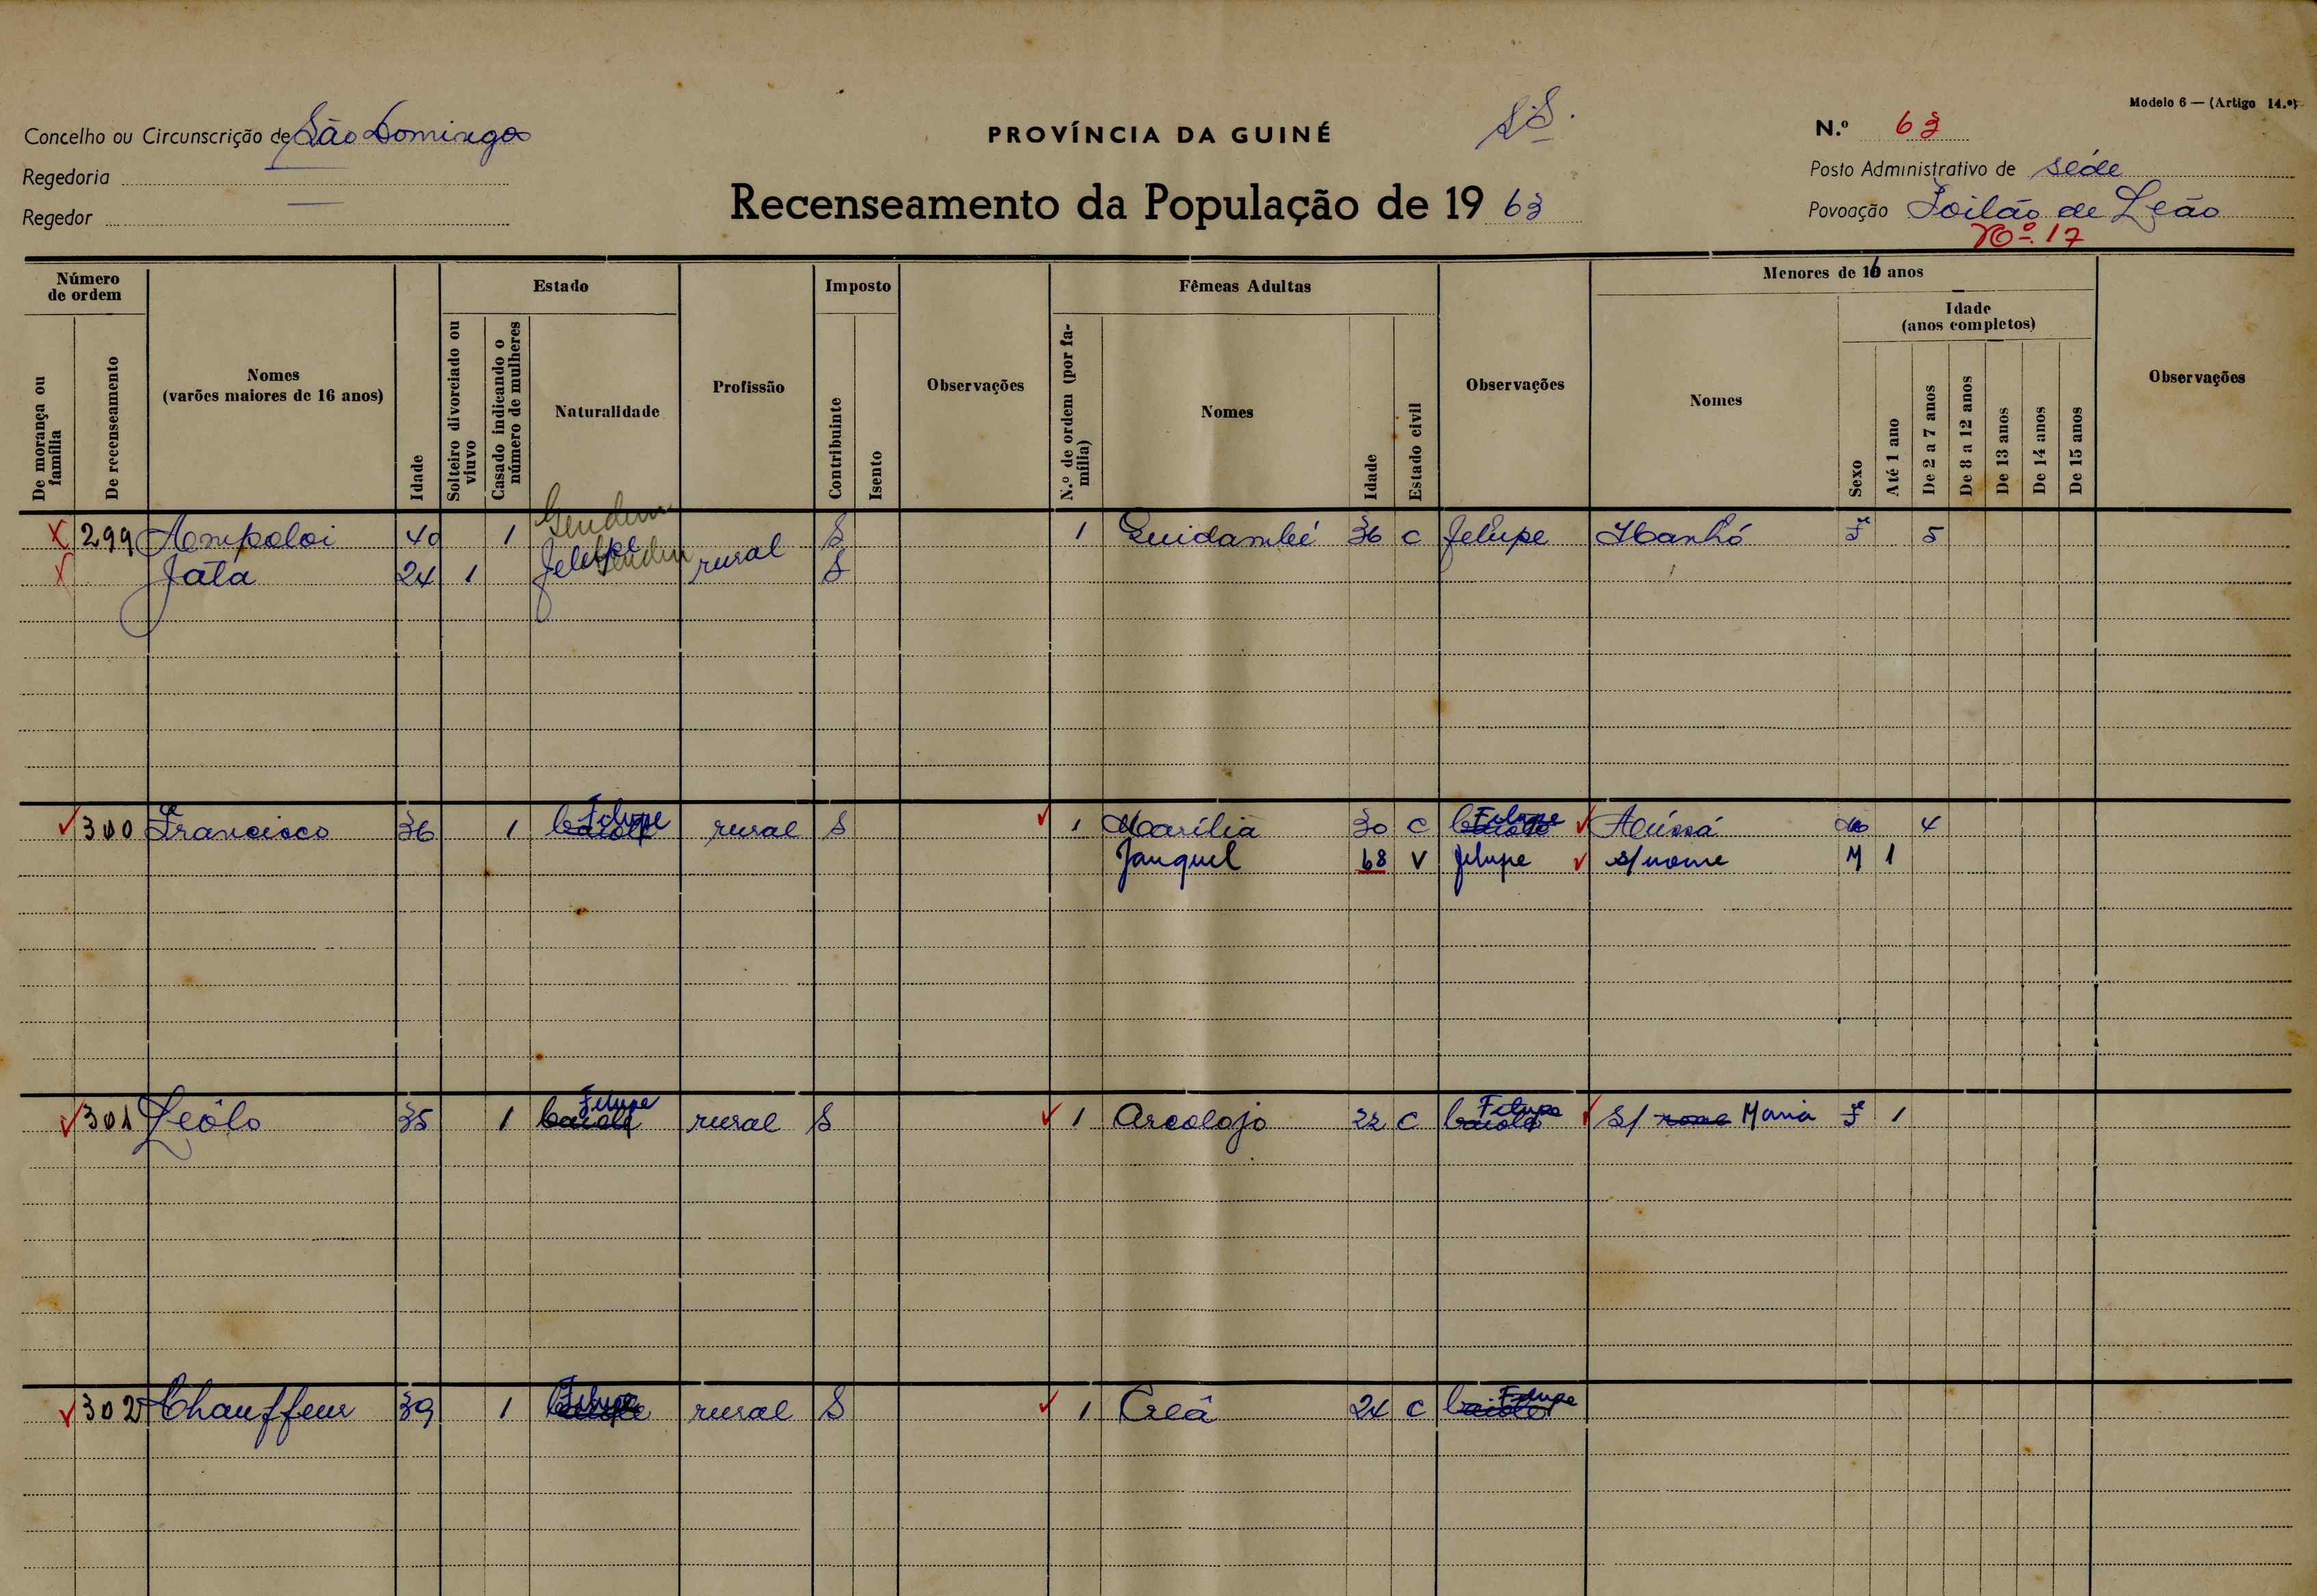 Modelo 6 — (Artigo 14.º)
Concelho ou Circunscrição de São Domingos
PROVÍNCIA DA GUINÉ
N.º 63
Regedoria
Posto Administrativo de séde
Regedor
Recenseamento da População de 1963
Povoação Poilão de Leão
Nº. 17
Número de ordem
Estado
Imposto
Fêmeas Adultas
Menores de 16 anos
Idade (anos completos)
De morança ou família
De recenseamento
Nomes (varões maiores de 16 anos)
Idade
Solteiro divorciado ou viuvo
Casado indicando o número de mulheres
Naturalidade
Profissão
Contribuinte
Isento
Observações
N.º de ordem (por família)
Nomes
Idade
Estado civil
Observações
Nomes
Sexo
Até 1 ano
De 2 a 7 anos
De 8 a 12 anos
De 13 anos
De 14 anos
De 15 anos
Observações
299 Ampaloi 40 1 Felupe rural S 1 Guidambé 36 C Felupe Nhanhó F 5
Jatá 24 1 S
300 Francisco 36 1 Felupe rural S 1 Marília 30 C Felupe Aússá M 4
Janquel 68 V felupe s/nome M 1
301 Leôlo 35 1 baiote Felupe rural S 1 Arcolojo 22 C baiote Felupe S/ nome Maria F 1
302 Chauffeur 39 1 Felupe rural S 1 Creâ 24 C baiote Felupe